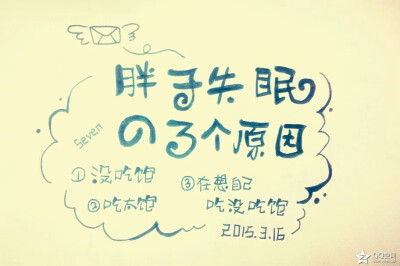 胖子失眠
の3个原因
Seven
①没吃饱
②吃太饱
③在想自己
吃没吃饱
2015.3.16
QQ空间